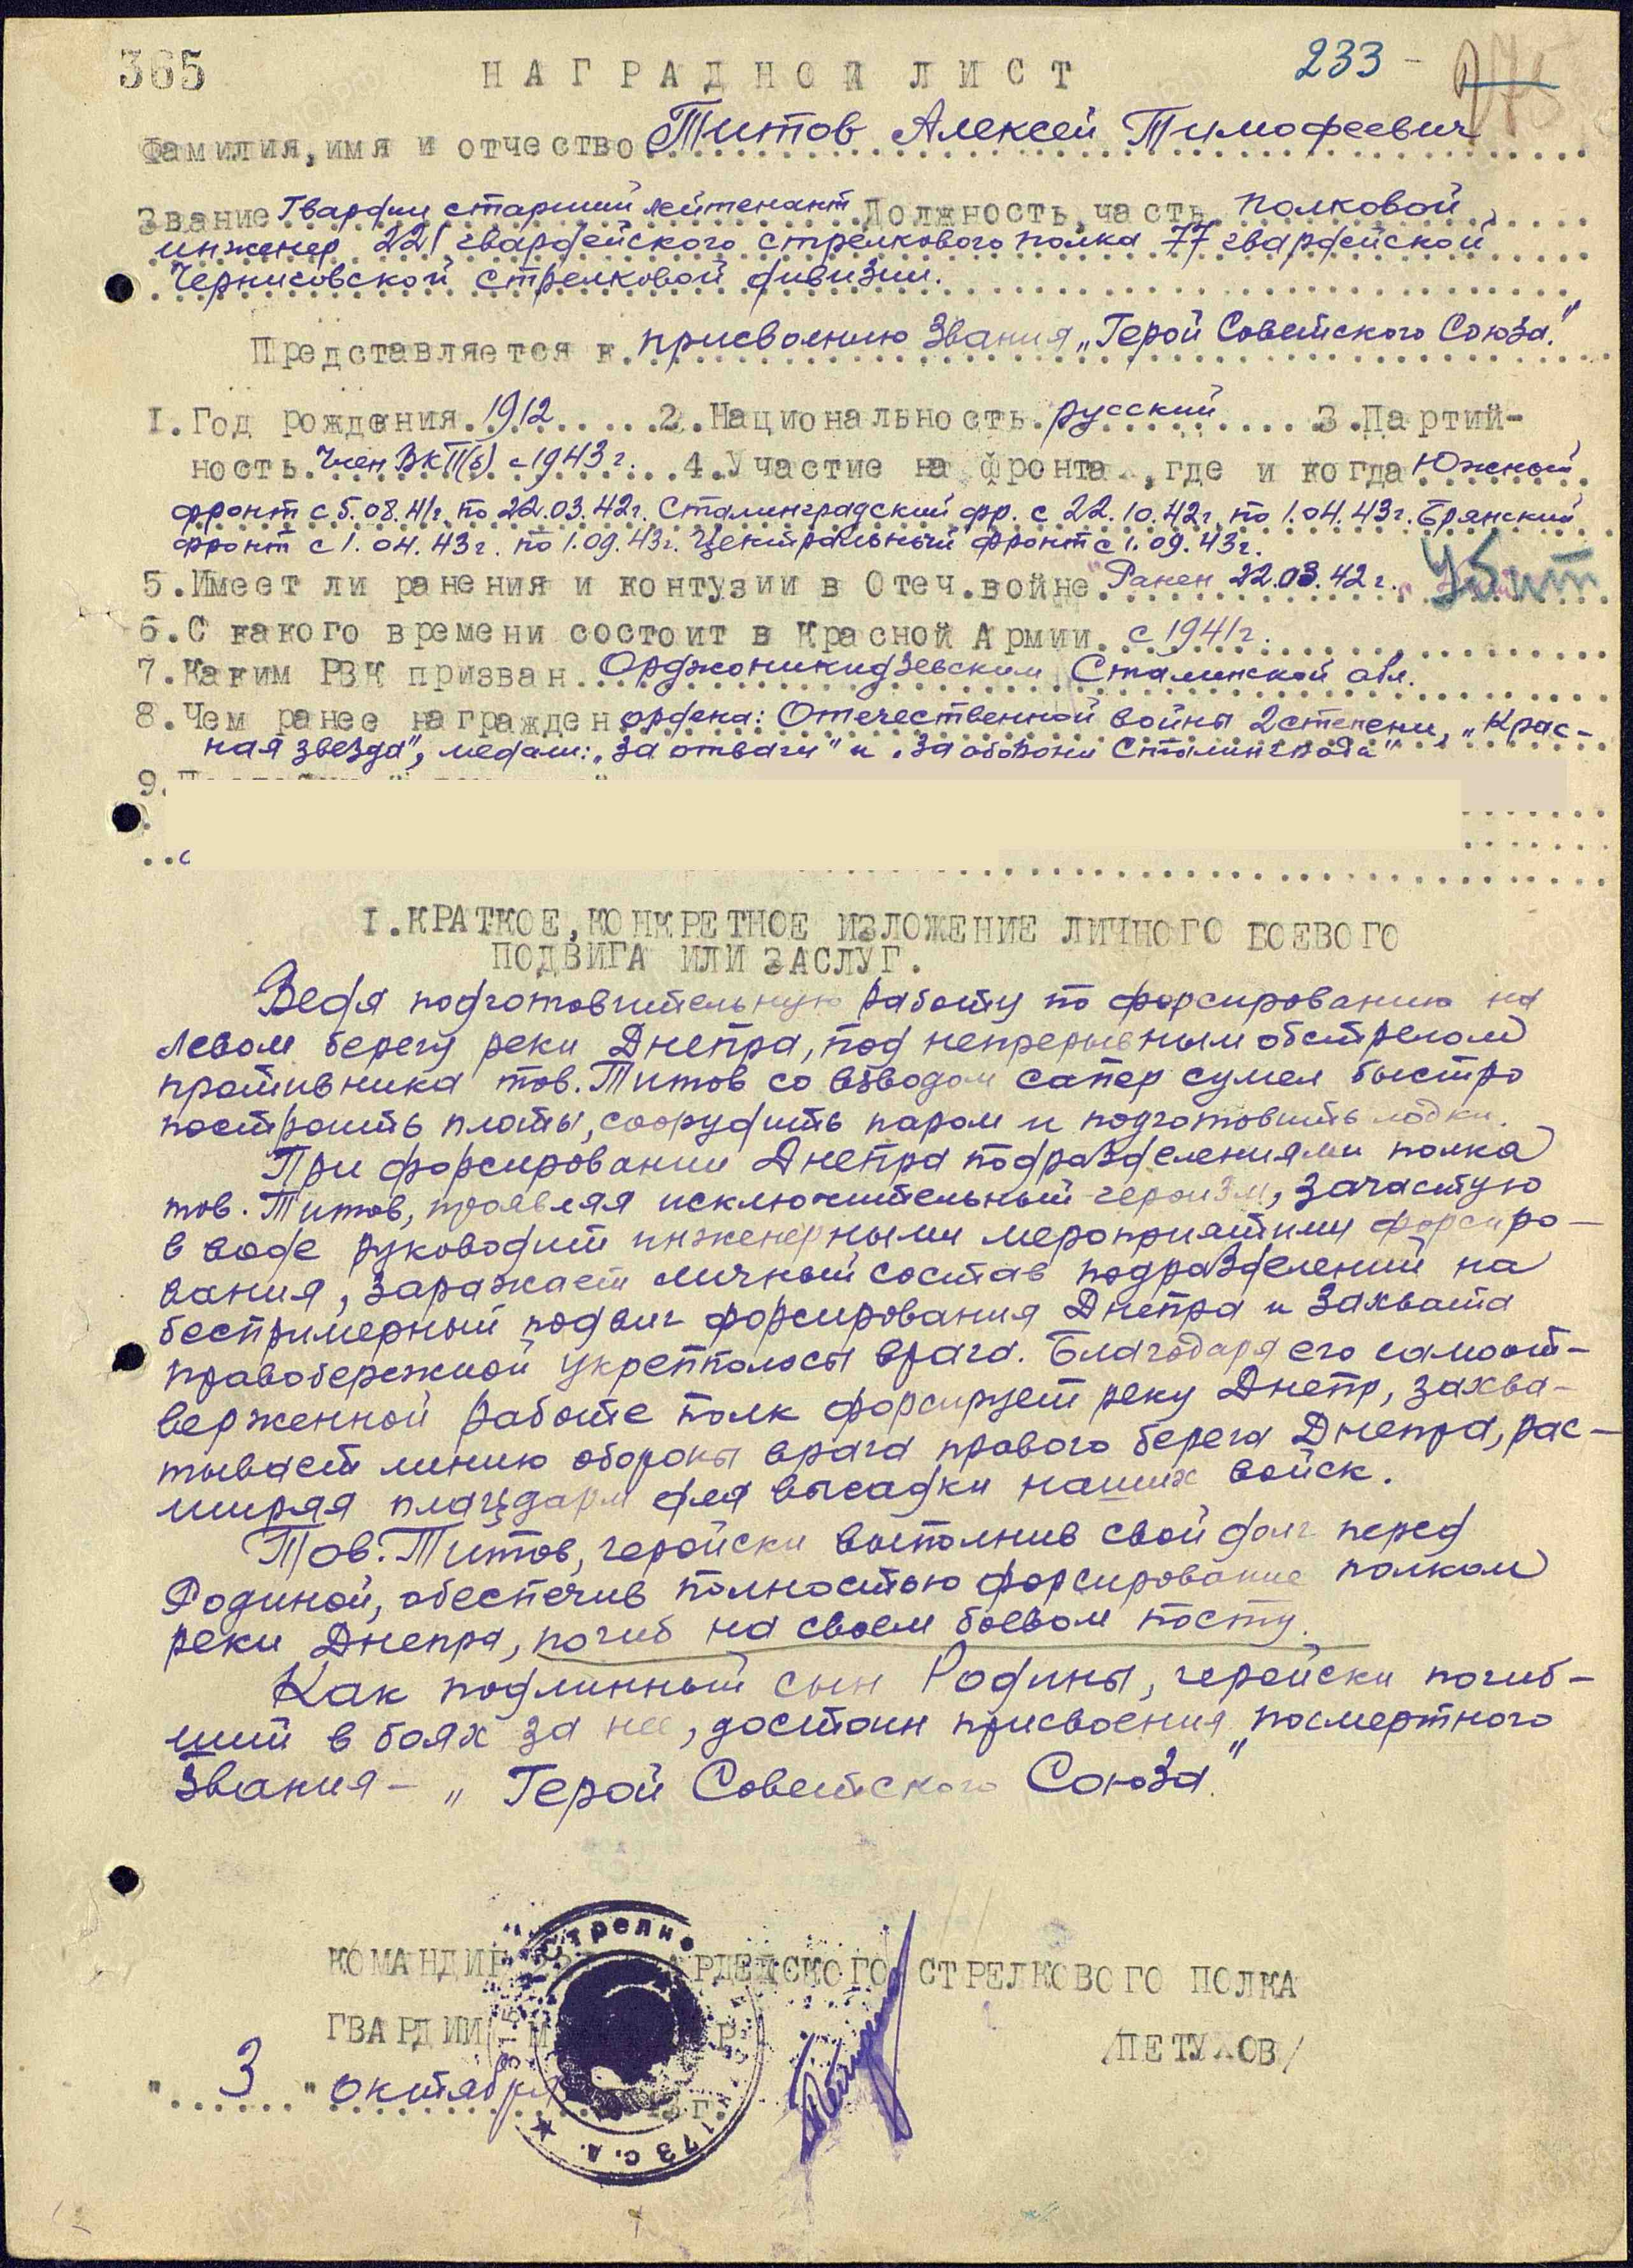 365 НАГРАДНОЙ ЛИСТ 233 -
Фамилия, имя и отчество Титов Алексей Тимофеевич
Звание Гвардии старший лейтенант Должность, часть полковой
инженер 221 гвардейского стрелкового полка 77 гвардейской
Черниговской стрелковой дивизии.
Представляется к присвоению звания „Герой Советского Союза."
1. Год рождения 1912 2. Национальность русский 3. Партий-
ность Член ВКП(б) с 1943 г. 4. Участие на фронтах, где и когда Южный
фронт с 5.08.41г. по 22.03.42г. Сталинградский фр. с 22.10.42г. по 1.04.43г. Брянский
фронт с 1.04.43г. по 1.09.43г. Центральный фронт с 1.09.43г.
5. Имеет ли ранения и контузии в Отеч. войне Ранен 22.03.42г. Убит
6. С какого времени состоит в Красной Армии с 1941г.
7. Каким РВК призван Орджоникидзевским Сталинской обл.
8. Чем ранее награжден ордена: Отечественной войны 2 степени, „Крас-
ная звезда", медали: „За отвагу" и „За оборону Сталинграда"
9.
I. КРАТКОЕ, КОНКРЕТНОЕ ИЗЛОЖЕНИЕ ЛИЧНОГО БОЕВОГО
ПОДВИГА ИЛИ ЗАСЛУГ.
Ведя подготовительную работу по форсированию на
левом берегу реки Днепра, под непрерывным обстрелом
противника тов. Титов со взводом сапер сумел быстро
построить плоты, соорудить паром и подготовить лодки.
При форсировании Днепра подразделениями полка
тов. Титов, проявляя исключительный героизм, зачастую
в воде руководит инженерными мероприятиями форсиро-
вания, заражает личный состав подразделений на
беспримерный подвиг форсирования Днепра и захвата
правобережной укрепполосы врага. Благодаря его самоот-
верженной работе полк форсирует реку Днепр, захва-
тывает линию обороны врага правого берега Днепра, рас-
ширяя плацдарм для высадки наших войск.
Тов. Титов, геройски выполнив свой долг перед
Родиной, обеспечив полностью форсирование полком
реки Днепра, погиб на своем боевом посту.
Как подлинный сын Родины, геройски погиб-
ший в боях за нее, достоин присвоения посмертного
звания - „Герой Советского Союза".
КОМАНДИР ГВАРДЕЙСКОГО СТРЕЛКОВОГО ПОЛКА
ГВАРДИИ /ПЕТУХОВ/
" 3 " октября г.
Стрелко
173 С.Д.